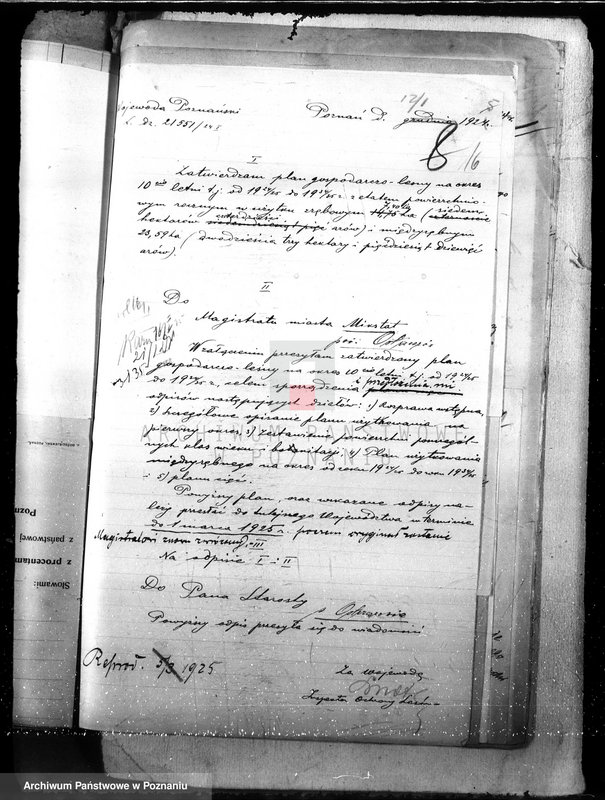 12/1
Wojewoda Poznański
L. dz. 21551/24 I
Poznań D. grudnia 1924 r.
8/6
I
Zatwierdzam plan gospodarczo-leśny na okres
10 cio letni t.j. od 19 24/25 do 19 34/35 r. z etatem powierzchnio-
wym rocznym w użytku zrębowym ha (siedem
hektarów arów) i międzyrębnym
23,59 ha (dwadzieścia trzy hektary i pięćdziesiąt dziewięć
arów).
II
Do
Magistratu miasta Mixstat
pow. Ostrzeszów
W załączeniu przesyłam zatwierdzony plan
gospodarczo-leśny na okres 10 cio letni t.j. od 19 24/25
do 19 34/35 r., celem sporządzenia i przedłożenia mi
odpisów następujących działów: 1) rozprawa wstępna,
2) szczegółowe opisanie planu użytkowania na
pierwszy okres 3) zestawienie powierzchni poszczegól-
nych klas wieku i bonitacji, 4) Plan użytkowania
międzyrębnego na okres od roku 19 24/25 do roku 19 34/35
i 5) planu cięć.
Powyższy plan, oraz wskazane odpisy na-
leży przesłać do tutejszego Województwa w terminie
do 1 marca 1925 r. poczem oryginał zostanie
Magistratowi znów zwrócony.
III
Na odpisie I i II
Do Pana Starosty
w Ostrzeszowie
Powyższy odpis przesyła się do wiadomości
Za wojewodę
Inspektor Ochrony Lasów
Reprod. 5/3 1925
ARCHIWUM PAŃSTWOWE
W POZNANIU
Pozn
z państwowej
z procentam
Słowami:
Archiwum Państwowe w Poznaniu